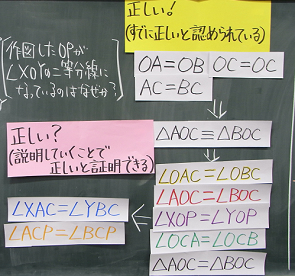 作図したOPが
∠XOYの二等分線に
なっているのはなぜか?
正しい!
(すでに正しいと認められている)
OA=OB OC=OC
AC=BC
⇓
正しい?
(説明していくことで
正しいと証明できる)
△AOC≡△BOC
⇓
∠OAC=∠OBC
∠AOC=∠BOC
∠XOP=∠YOP
∠OCA=∠OCB
△AOC=△BOC
⇐
∠XAC=∠YBC
∠ACP=∠BCP